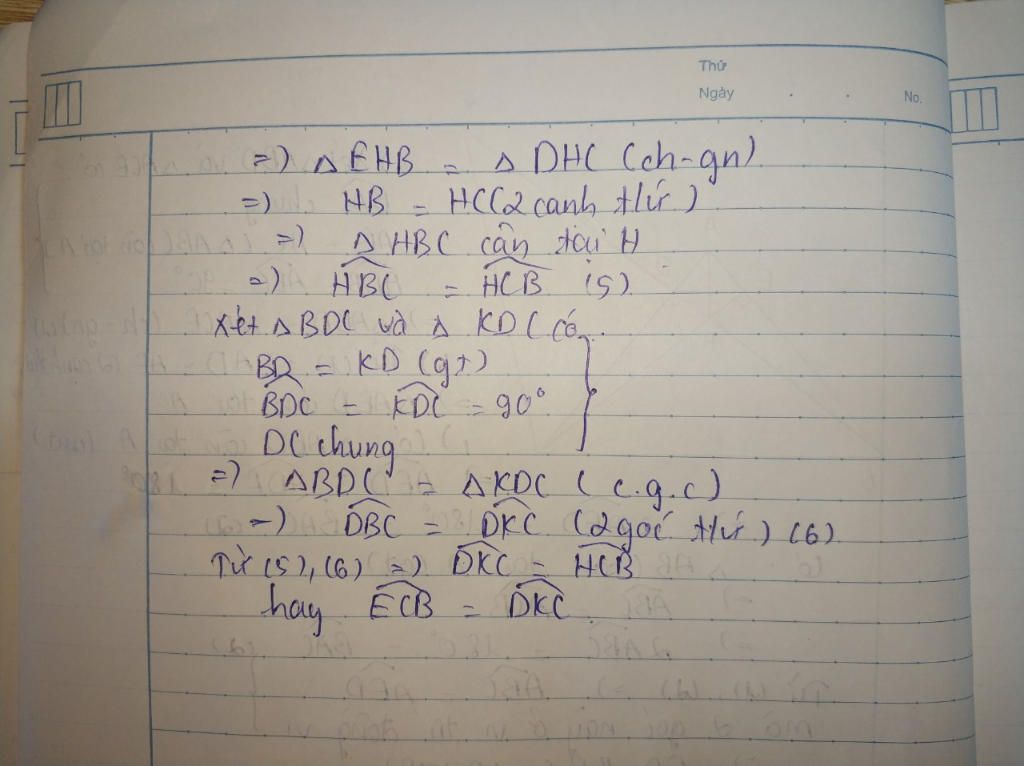 Thứ
Ngày . . No.
=) △ EHB = △ DHC (ch-gn)
=) HB = HC (2 canh tứ)
=) △ HBC cân tại H
=) \widehat{HBC} = \widehat{HCB} (5)
Xét △ BDC và △ KDC có
BD = KD (gt)
\widehat{BDC} = \widehat{KDC} = 90°
DC chung
=) △BDC = △KDC ( c.g.c)
=) \widehat{DBC} = \widehat{DKC} (2 góc tứ) (6)
Từ (5), (6) =) \widehat{DKC} = \widehat{HCB}
hay \widehat{ECB} = \widehat{DKC}